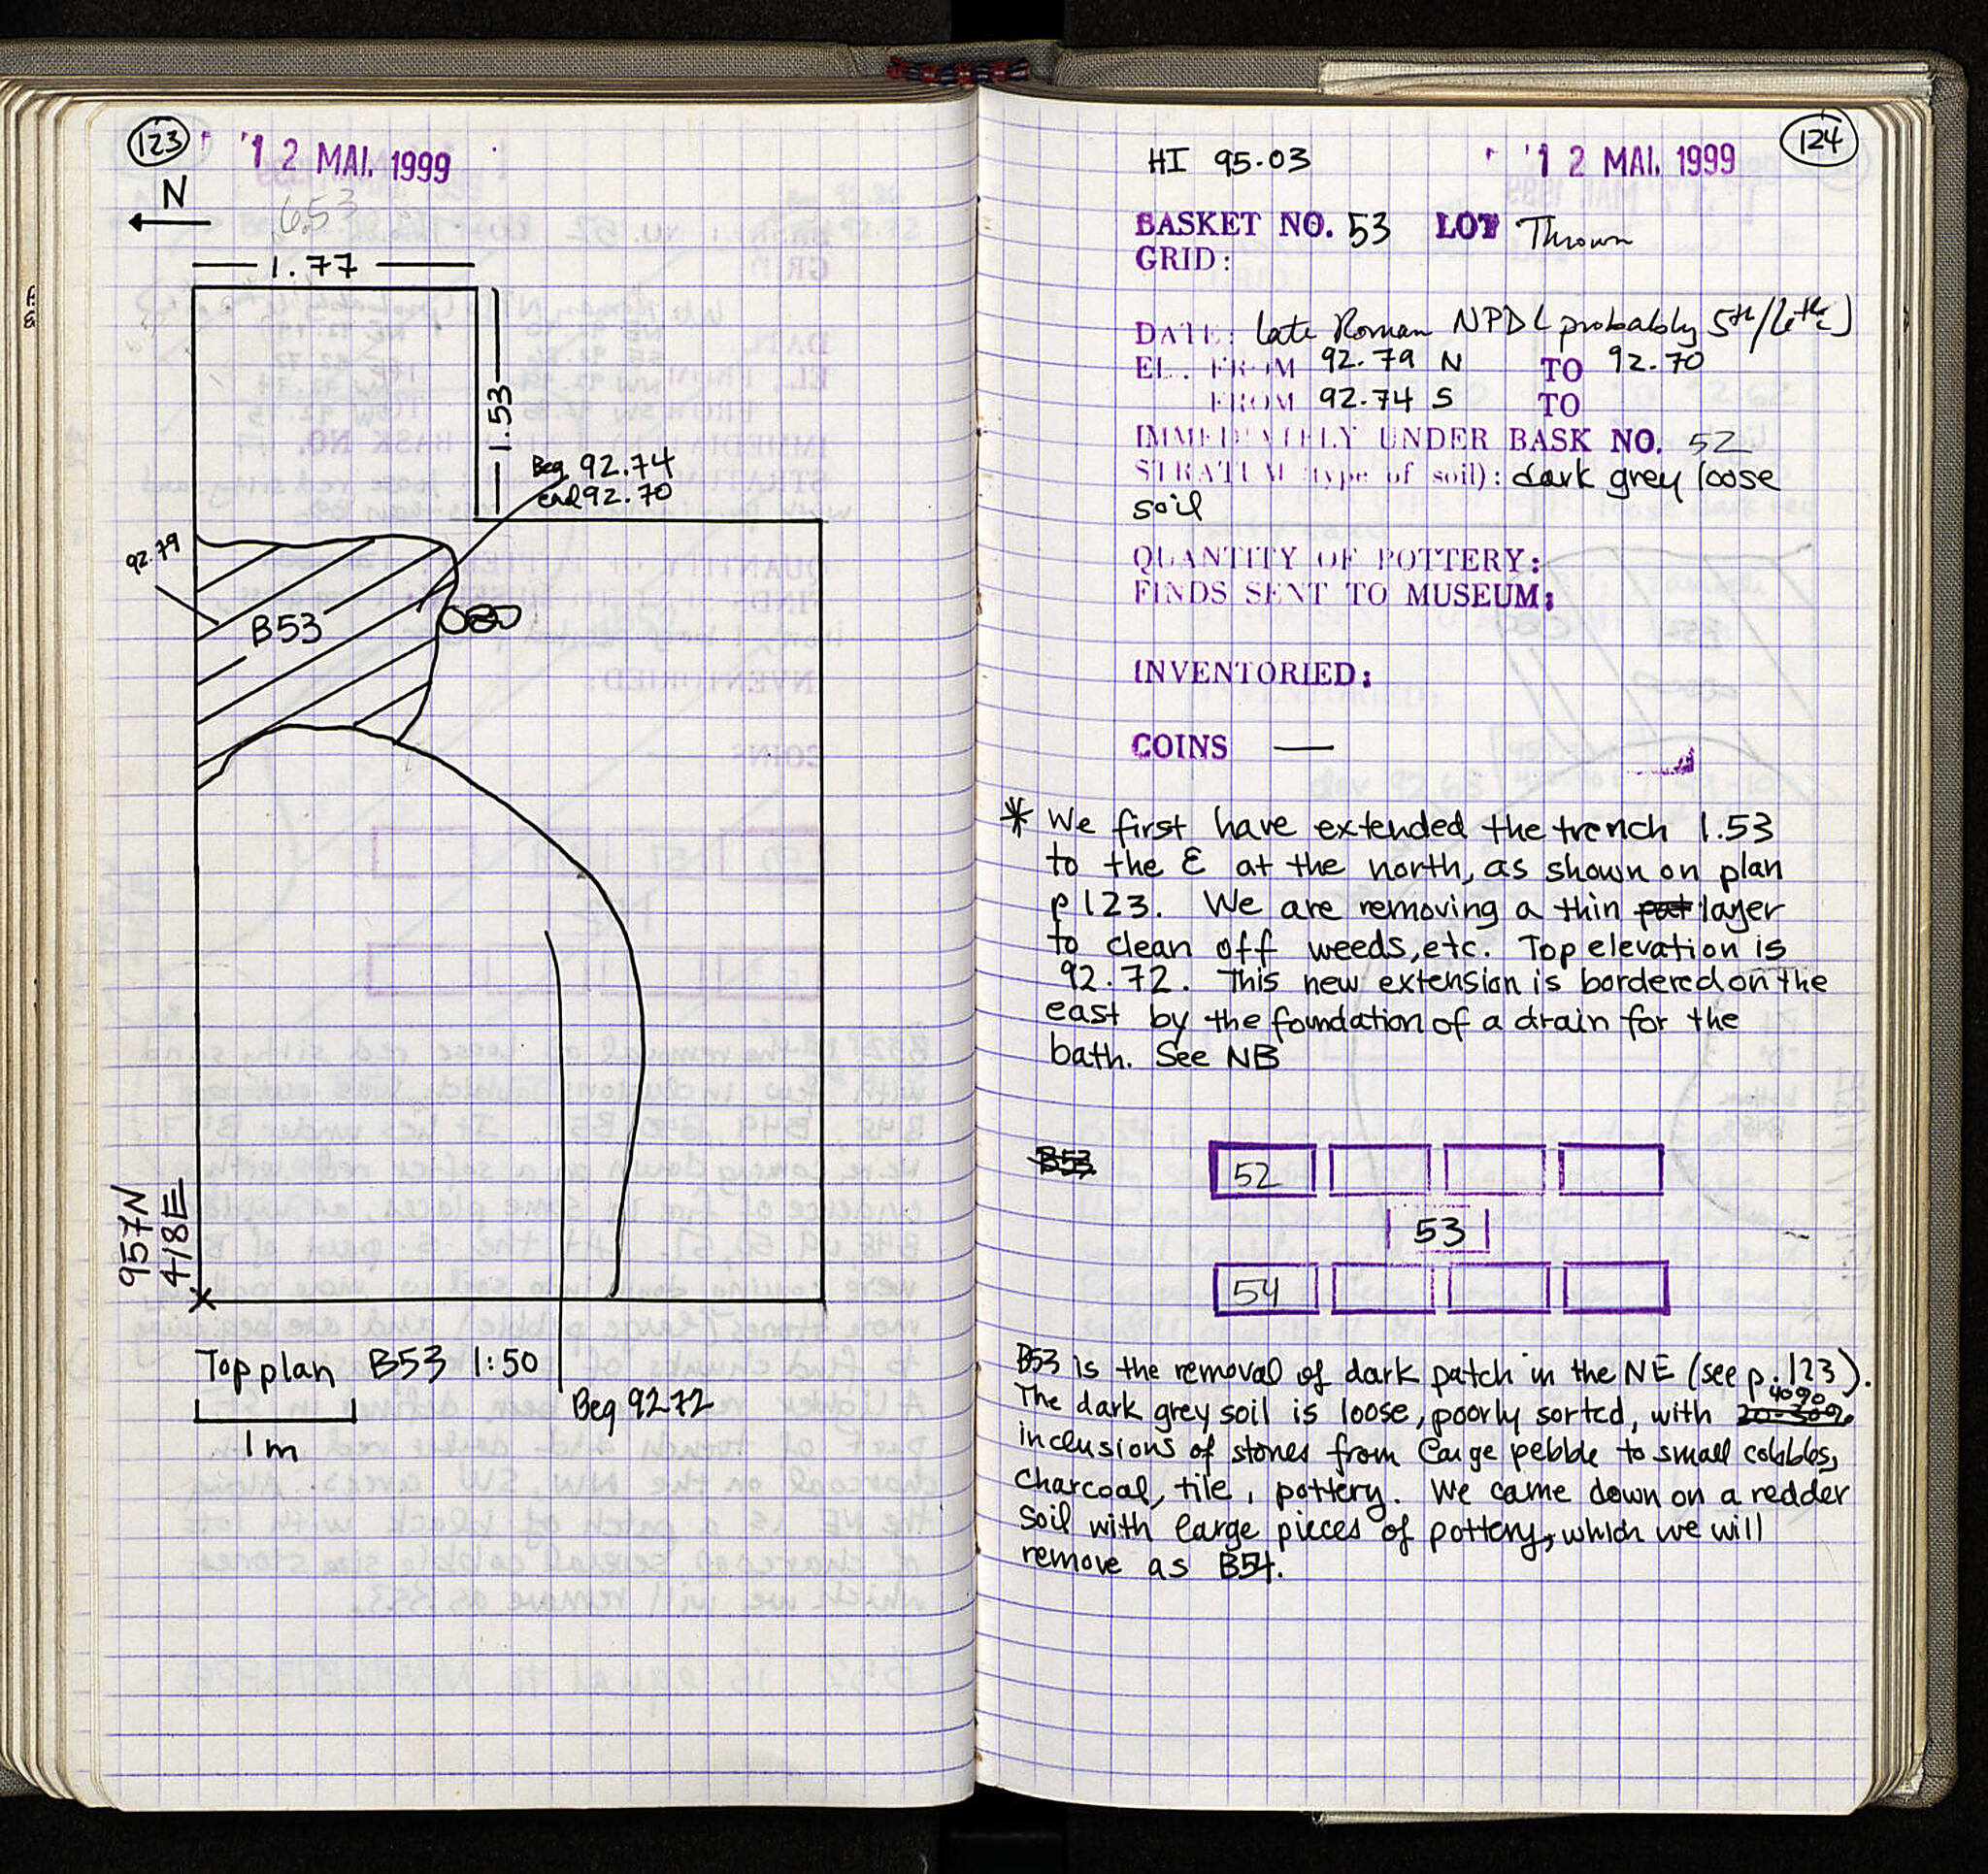 123
12 MAI. 1999
N
653
1.77
1.53
Beg 92.74
end 92.70
92.79
B53
957N
418E
Top plan B53 1:50
1m
Beg 92.72
124
HI 95.03
12 MAI. 1999
BASKET NO. 53 LOT Thrown
GRID:
DATE: Late Roman NPD (probably 5th/6th c)
EL. FROM 92.79 N TO 92.70
FROM 92.74 S TO
IMMEDIATELY UNDER BASK NO. 52
STRATUM (type of soil): dark grey loose
soil
QUANTITY OF POTTERY:
FINDS SENT TO MUSEUM:
INVENTORIED:
COINS —
* We first have extended the trench 1.53
to the E at the north, as shown on plan
p 123. We are removing a thin layer
to clean off weeds, etc. Top elevation is
92.72. This new extension is bordered on the
east by the foundation of a drain for the
bath. See NB
B53
52
53
54
B53 is the removal of dark patch in the NE (see p. 123).
The dark grey soil is loose, poorly sorted, with 40%
inclusions of stones from large pebble to small cobbles,
charcoal, tile, pottery. We came down on a redder
soil with large pieces of pottery, which we will
remove as B54.